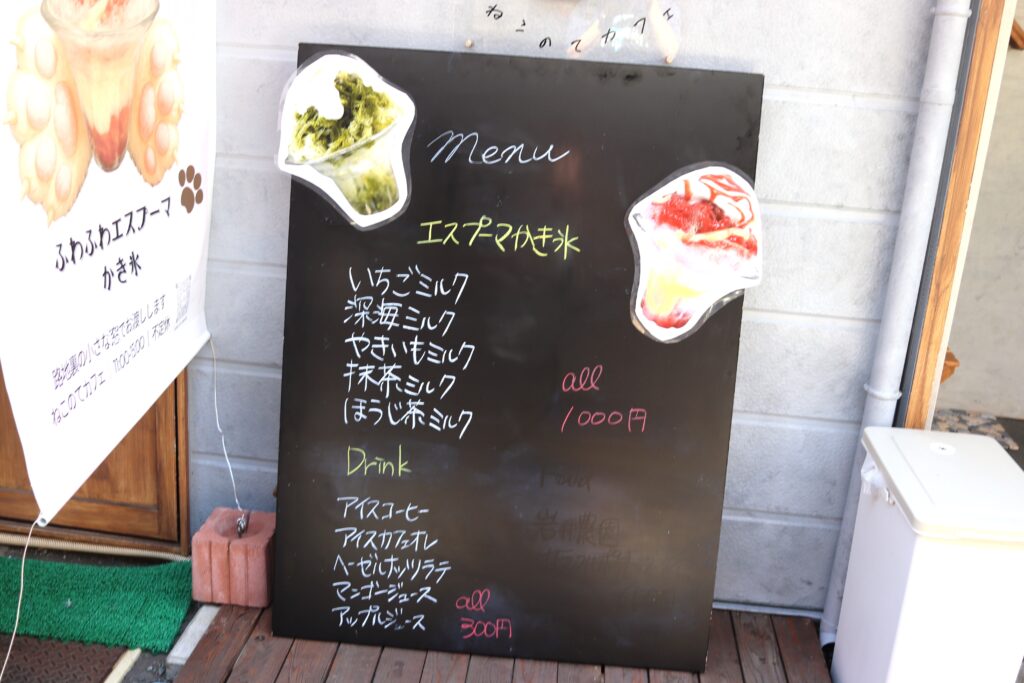 ねこのてカフェ
ふわふわエスプーマ
かき氷
路地裏の小さな窓でお渡しします
ねこのてカフェ 11:00-5:00 / 不定休
Menu
エスプーマかき氷
いちごミルク
深海ミルク
やきいもミルク
抹茶ミルク
ほうじ茶ミルク
all
1000円
Drink
アイスコーヒー
アイスカフェオレ
ヘーゼルナッツラテ
マンゴージュース
アップルジュース
all
300円